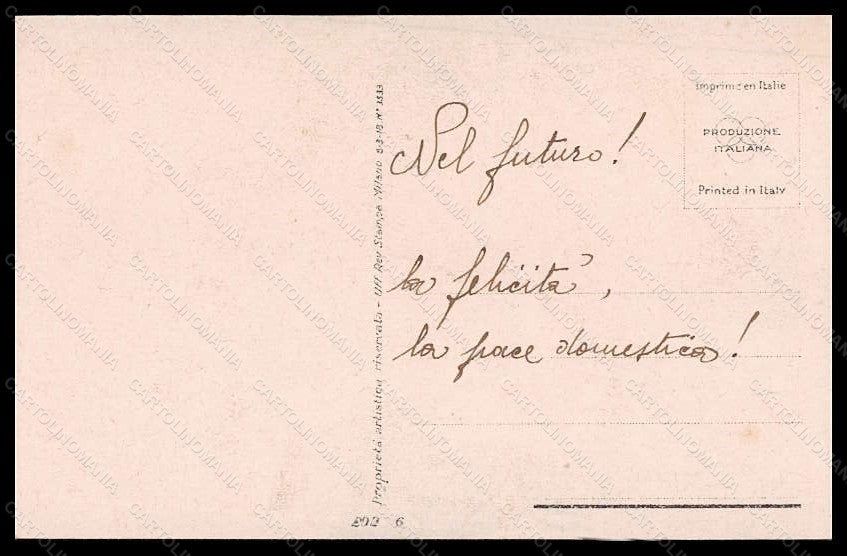 Nel futuro!
la felicità,
la pace domestica!
Imprimé en Italie
PRODUZIONE
ITALIANA
Printed in Italy
Proprietà artistica riservata - Uff. Rev. Stampa Milano 5-3-18 N° 1533
202 6
CARTOLINOMANIA